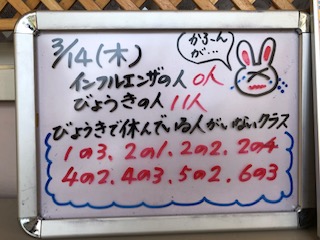 3/14(木)
かろ〜ん
が…
インフルエンザの人 0人
びょうきの人 11人
びょうきで休んでいる人がいないクラス
1の3、2の1、2の2、2の4
4の2、4の3、5の2、6の3